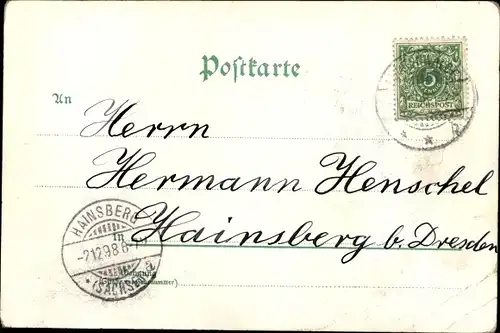 Postkarte
An
5
REICHSPOST
Herrn
Hermann Henschel
in Hainsberg b. Dresden
HAINSBERG
-2 12 98 6
* (SACHSEN)